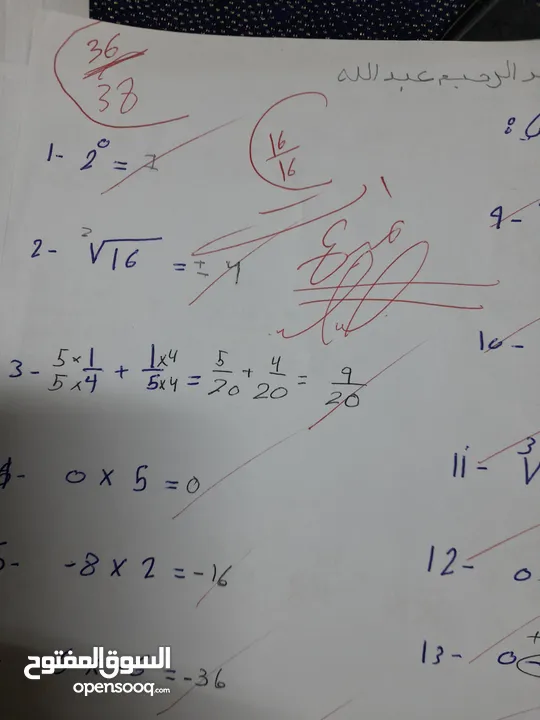 36
38
الرحيم عبدالله
16
16
1- 2⁰ = 1
2- ²√16 = ± 4
9-
3- 5×1/5×4 + 1×4/5×4 = 5/20 + 4/20 = 9/20
10-
0 × 5 = 0
11- ³√
-8 × 2 = -16
12- 0
= -36
13- 0
السوق المفتوح
opensooq.com